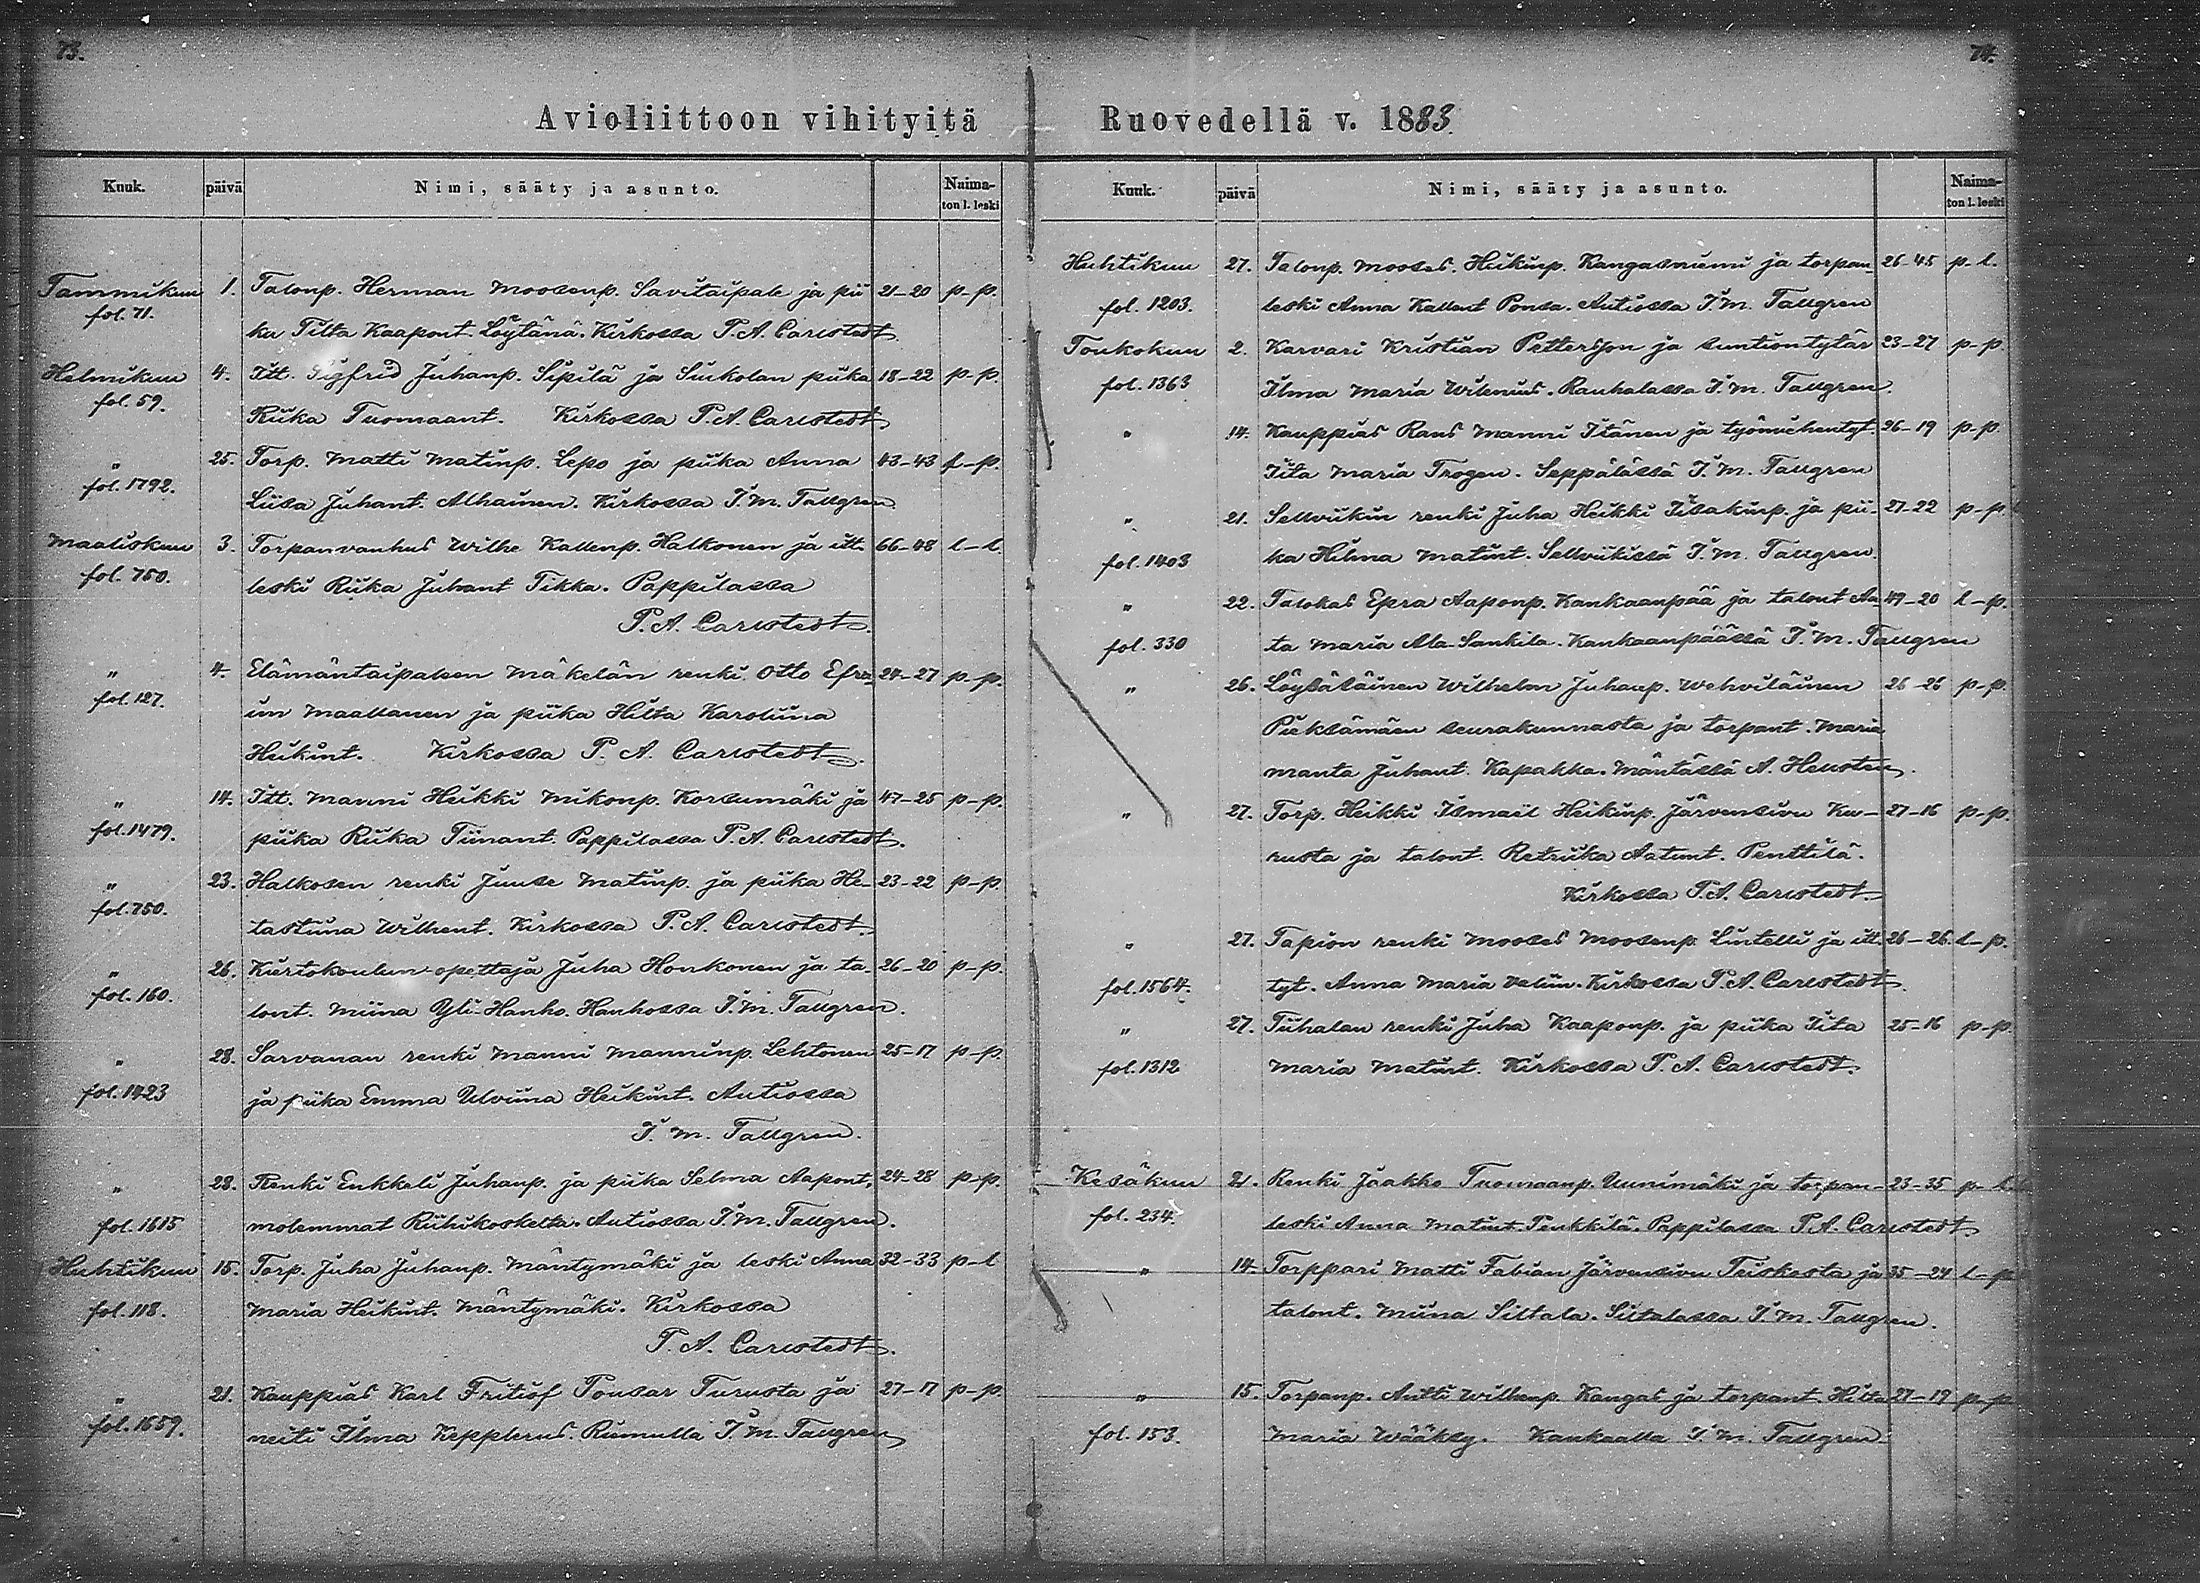 73.
Avioliittoon vihityitä
Kuuk. päivä Nimi, sääty ja asunto. Naima-
ton l. leski
Tammikuu 1. Talonp. Herman Moosenp. Savitaipale ja pii 21-20 p-p.
fol. 71. ka Tilta Kaapont. Löytänä. Kirkossa P. A. Carlstedt.
Helmikuu 4. Itt. Sigfrid Juhanp. Sipilä ja Siukolan piika 18-22 p-p.
fol. 59. Riika Tuomaant. Kirkossa P. A. Carlstedt.
" 25. Torp. Matti Matinp. Lepo ja piika Anna 43-43 l-p.
fol. 1792. Liisa Juhant. Alhainen. Kirkossa I. M. Tallgren.
Maaliskuu 3. Torpanvanhus Wilhe Kallenp. Halkonen ja itt. 66-48 l-l.
fol. 750. leski Riika Juhant Tikka. Pappilassa
P. A. Carlstedt.
" 4. Elämäntaipaleen Mäkelän renki Otto Efra- 24-27 p-p.
fol. 127. im Maallanen ja piika Hilta Karoliina
Heikint. Kirkossa P. A. Carlstedt.
" 14. Itt. Manni Heikki Mikonp. Korsumäki ja 47-25 p-p.
fol. 1479. piika Riika Tiinant. Pappilassa P. A. Carlstedt.
" 23. Halkosen renki Juuse Matinp. ja piika He- 23-22 p-p.
fol. 750. tastiina Wilhent. Kirkossa P. A. Carlstedt.
" 26. Kiertokoulun-opettaja Juha Honkonen ja ta- 26-20 p-p.
fol. 160. lont. Miina Yli-Hanho. Hanhossa I. M. Tallgren.
" 28. Sarvanan renki Manni Manninp. Lehtonen 25-17 p-p.
fol. 1423 ja piika Emma Ulviina Heikint. Autiossa
I. M. Tallgren.
" 28. Renki Enkkeli Juhanp. ja piika Selma Aapont, 24-28 p-p.
fol. 1615 molemmat Riihikoskelta. Autiossa I. M. Tallgren.
Huhtikuu 15. Torp. Juha Juhanp. Mäntymäki ja leski Anna 32-33 p-l
fol. 118. Maria Heikint. Mäntymäki. Kirkossa
P. A. Carlstedt.
" 21. Kauppias Karl Fritiof Pousar Turusta ja 27-17 p-p.
fol. 1659. neiti Ilma Kepplerus. Riemulla I. M. Tallgren
74.
Ruovedellä v. 1883.
Kuuk. päivä Nimi, sääty ja asunto. Naima-
ton l. leski
Huhtikuu 27. Talonp. Mooses Heikinp. Kangasniemi ja torpan- 26-45 p-l.
fol. 1203. leski Anna Kallent Ponsa. Autiossa I. M. Tallgren
Toukokuu 2. Karvari Kristian Pettersson ja suntiontytär 23-27 p-p.
fol. 1363 Ilma Maria Wilenius. Rauhalassa I. M. Tallgren.
" 14. Kauppias Rans Manni Itänen ja työmiehentyt. 26-19 p-p.
Iita Maria Trogen. Seppälässä I. M. Tallgren
" 21. Sellviikin renki Juha Heikki Iisakinp. ja pii- 27-22 p-p.
fol. 1403 ka Hilma Matint. Sellviikissä I. M. Tallgren.
" 22. Talokas Epra Aaponp. Kankaanpää ja talont Aa- 49-20 l-p.
fol. 330 ta Maria Ala-Sankila. Kankaanpäässä I. M. Tallgren
" 26. Löysäläinen Wilhelm Juhanp. Wehviläinen 26-26 p-p.
Pieksämäen seurakunnasta ja torpant. Maria
manta Juhant. Kapakka. Mäntässä A. Hellsten.
" 27. Torp. Heikki Ismaël Heikinp. Järvensivu Ku- 27-16 p-p.
rusta ja talont. Retriika Aatunt. Penttilä.
Kirkossa P. A. Carlstedt.
" 27. Tapion renki Mooses Moosenp. Lintelli ja itt. 26-26 l-p.
fol. 1564. tyt. Anna Maria Valiin. Kirkossa P. A. Carlstedt.
" 27. Tiihalan renki Juha Kaaponp. ja piika Iita 25-16 p-p
fol. 1312 Maria Matint. Kirkossa P. A. Carlstedt.
Kesäkuu 21. Renki Jaakko Tuomaanp. Uunimäki ja torpan- 23-35 p-l.
fol. 234. leski Anna Matint. Penkkilä. Pappilassa P. A. Carlstedt.
" 14. Torppari Matti Fabian Järvensivu Teiskosta ja 35-24 l-p
talont. Miina Siltala. Siltalassa I. M. Tallgren.
" 15. Torpanp. Antti Wilhenp. Kangas ja torpant. Hilta 27-19 p-p
fol. 153. Maria Wääksy. Kankaalla I. M. Tallgren.